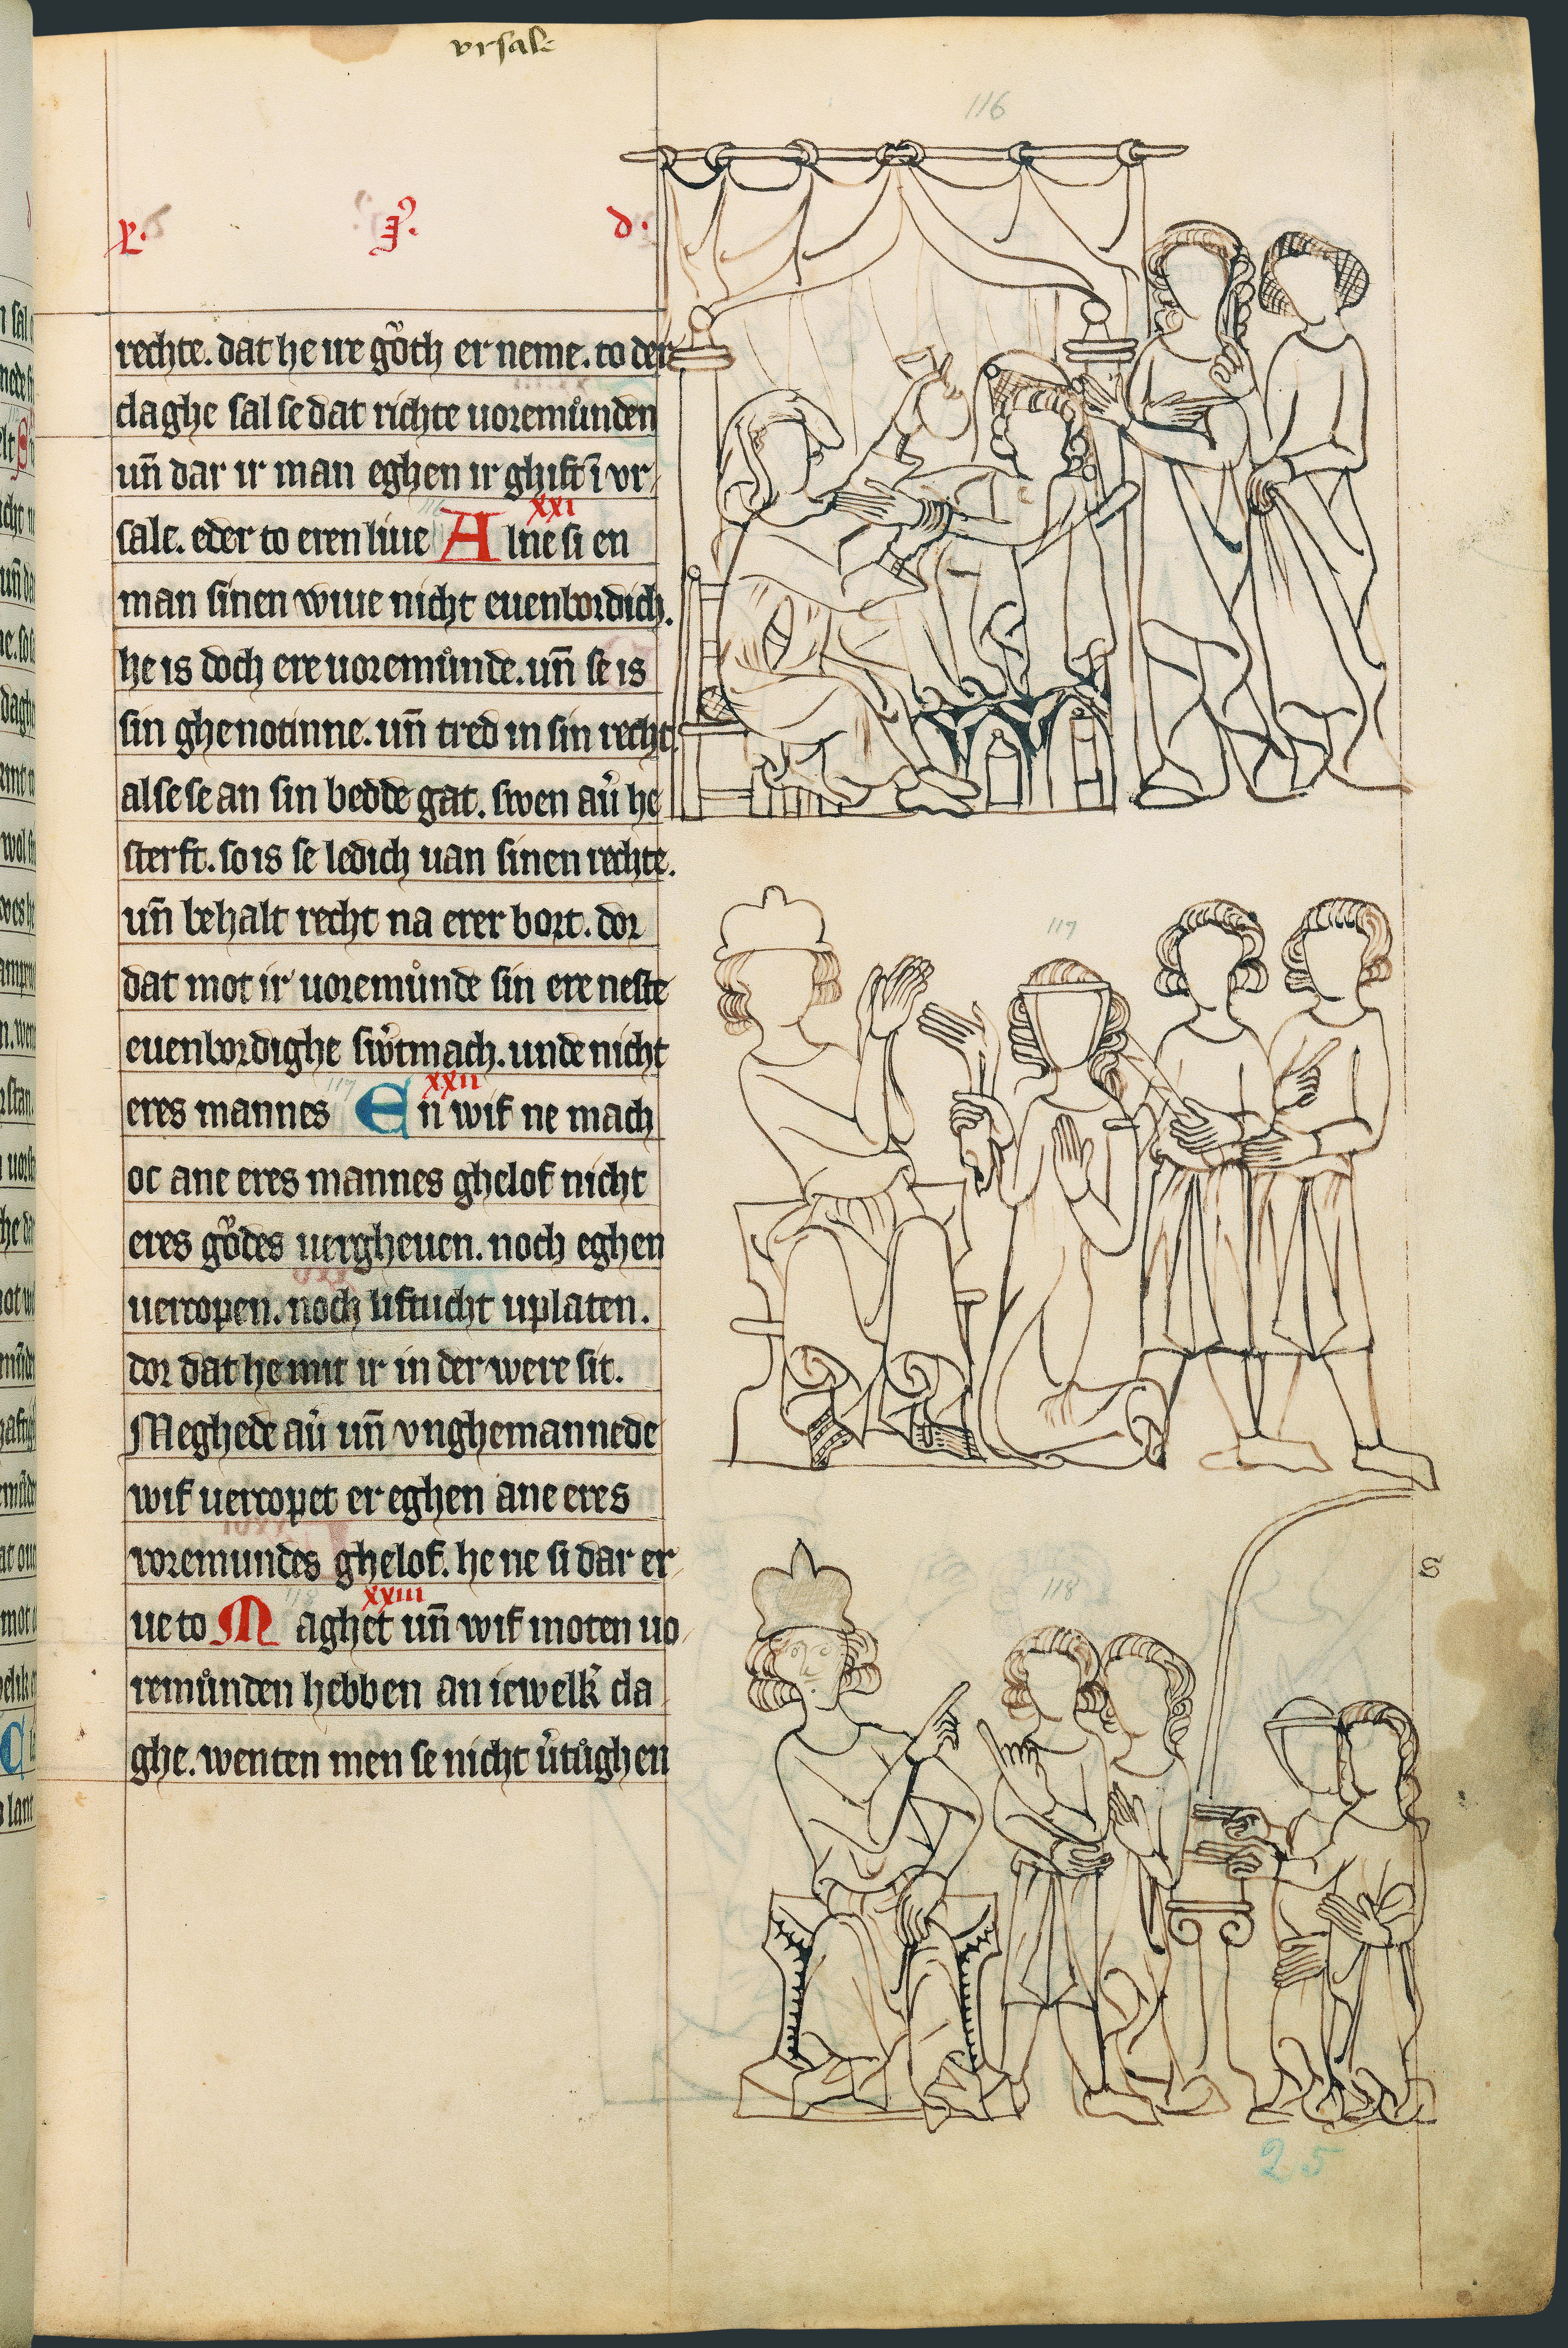 vrsale
116
rechte. dat he ire gůth er neme. to der
claghe sal se dat richte uoremůnden
un̄ dar ir man eghen ir ghift ī vr
sale. eder to eren liue A lne si en
xxi
man sinen wiue nicht euenbordich.
he is doch ere uoremůnde. un̄ se is
sin ghenotinne. un̄ tred in sin recht.
alse se an sin bedde gat. swen au᷑ he
sterft. so is se ledich uan sinen rechte.
un̄ behalt recht na erer bort. dor
dat mot ir uoremůnde sin ere neste
euenbordighe sw᷑tmach. unde nicht
117
xxii
eres mannes En wif ne mach
oc ane eres mannes ghelof nicht
eres gůdes uergheuen. noch eghen
uercopen. noch liftucht uplaten.
dor dat he mit ir in der were sit.
Meghede au᷑ un̄ vnghemannede
wif uercopet er eghen ane eres
voremundes ghelof. he ne si dar er
xxiii
ue to Maghet un̄ wif moten uo
remůnden hebben an iewelk᷑ cla
ghe. wenten men se nicht u᷑tůghen
117
118
s
25